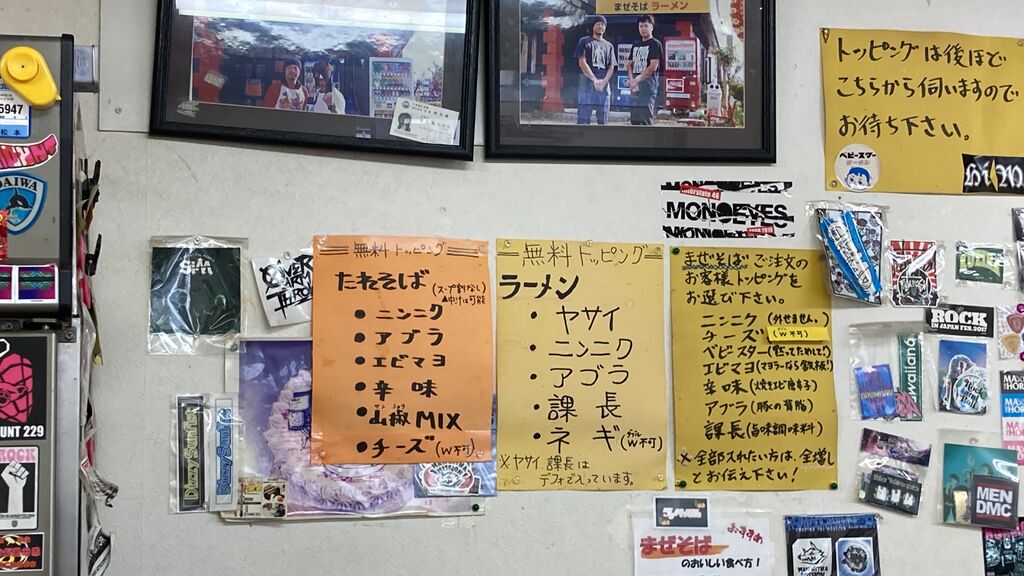 まぜそば ラーメン
トッピングは後ほど
こちらから伺いますので
お待ち下さい。
ベビースター
ラーメン
5947
松本
DAIWA
MONOEYES
SiM
OVER
THROW
無料トッピング
たれそば (スープ割なし)
▲中汁は可能
• ニンニク
• アブラ
• エビマヨ
• 辛味
• 山椒MIX
• チーズ (W不可)
無料トッピング
ラーメン
・ヤサイ
・ニンニク
・アブラ
・課長
・ネギ (W不可)
※ヤサイ 課長は
デフォで入っています。
まぜそばご注文の
お客様トッピングを
お選び下さい。
ニンニク (外せません。)
チーズ (W不可)
ベビスター (黙ってためして!)
エビマヨ (マヨラーなら飲み放!)
辛味 (焼きエビ唐辛子)
アブラ (豚の背脂)
課長 (旨味調味料)
※全部入れたい方は、全増し
とお伝え下さい!
おすすめ
まぜそば
のおいしい食べ方!
ROCK
IN JAPAN FES.2017
Hawaiian6
Dizzy Sunfist
Dizzy Sunfist
MEN
DMC
UNT 229
ROCK